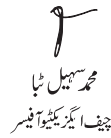 محمد سہیل ٹبا
چیف ایگزیکٹیو آفیسر